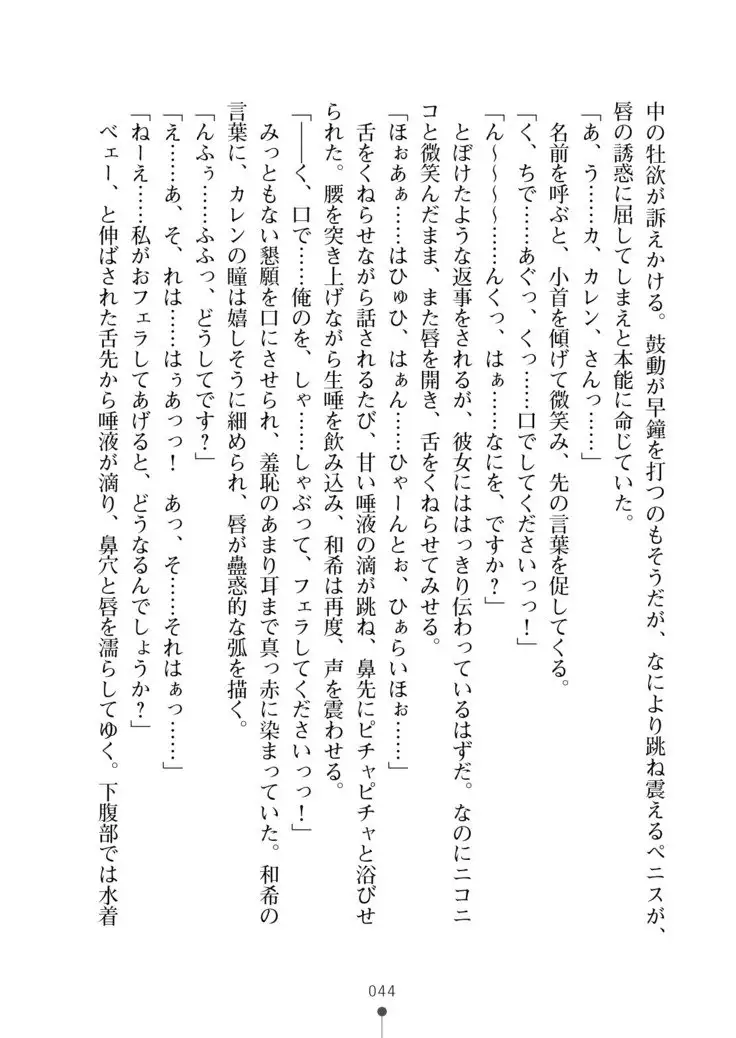 中の牡欲が訴えかける。鼓動が早鐘を打つのもそうだが、なにより跳ね震えるペニスが、
唇の誘惑に屈してしまえと本能に命じていた。
「あ、う……カ、カレン、さんっ……」
名前を呼ぶと、小首を傾げて微笑み、先の言葉を促してくる。
「く、ちで……あぐっ、くっ……口でしてくださいっっ！」
「ん～～～～……んくっ、はぁ……なにを、ですか？」
とぼけたような返事をされるが、彼女にははっきり伝わっているはずだ。なのにニコニ
コと微笑んだまま、また唇を開き、舌をくねらせてみせる。
「ほぉあぁ……はひゅひ、はぁん……ひゃーんとぉ、ひぁらいほぉ……」
舌をくねらせながら話されるたび、甘い唾液の滴が跳ね、鼻先にピチャピチャと浴びせ
られた。腰を突き上げながら生唾を飲み込み、和希は再度、声を震わせる。
「――く、口で……俺のを、しゃ……しゃぶって、フェラしてくださいっっ！」
みっともない懇願を口にさせられ、羞恥のあまり耳まで真っ赤に染まっていた。和希の
言葉に、カレンの瞳は嬉しそうに細められ、唇が蠱惑的な弧を描く。
「んふぅ……ふふっ、どうしてです？」
「え……あ、そ、れは……はぅあっっ！　あっ、そ……それはぁっ……」
「ねーえ……私がおフェラしてあげると、どうなるんでしょうか？」
べェー、と伸ばされた舌先から唾液が滴り、鼻穴と唇を濡らしてゆく。下腹部では水着
044